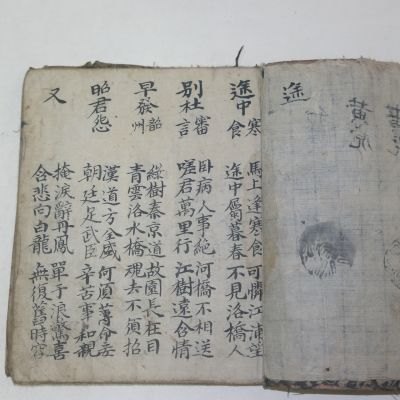 途
途中寒食
馬上逢寒食 可憐江浦望
途中屬暮春 不見洛橋人
別杜審言
臥病人事絶 河橋不相送
嗟君萬里行 江樹遠含情
早發韶州
綠樹秦京道 故園長在目
青雲洛水橋 魂去不須招
昭君怨
漢道方全盛 何須薄命妾
朝廷足武臣 辛苦事和親
又
掩淚辭丹鳳 單于浪驚喜
含悲向白龍 無復舊時容